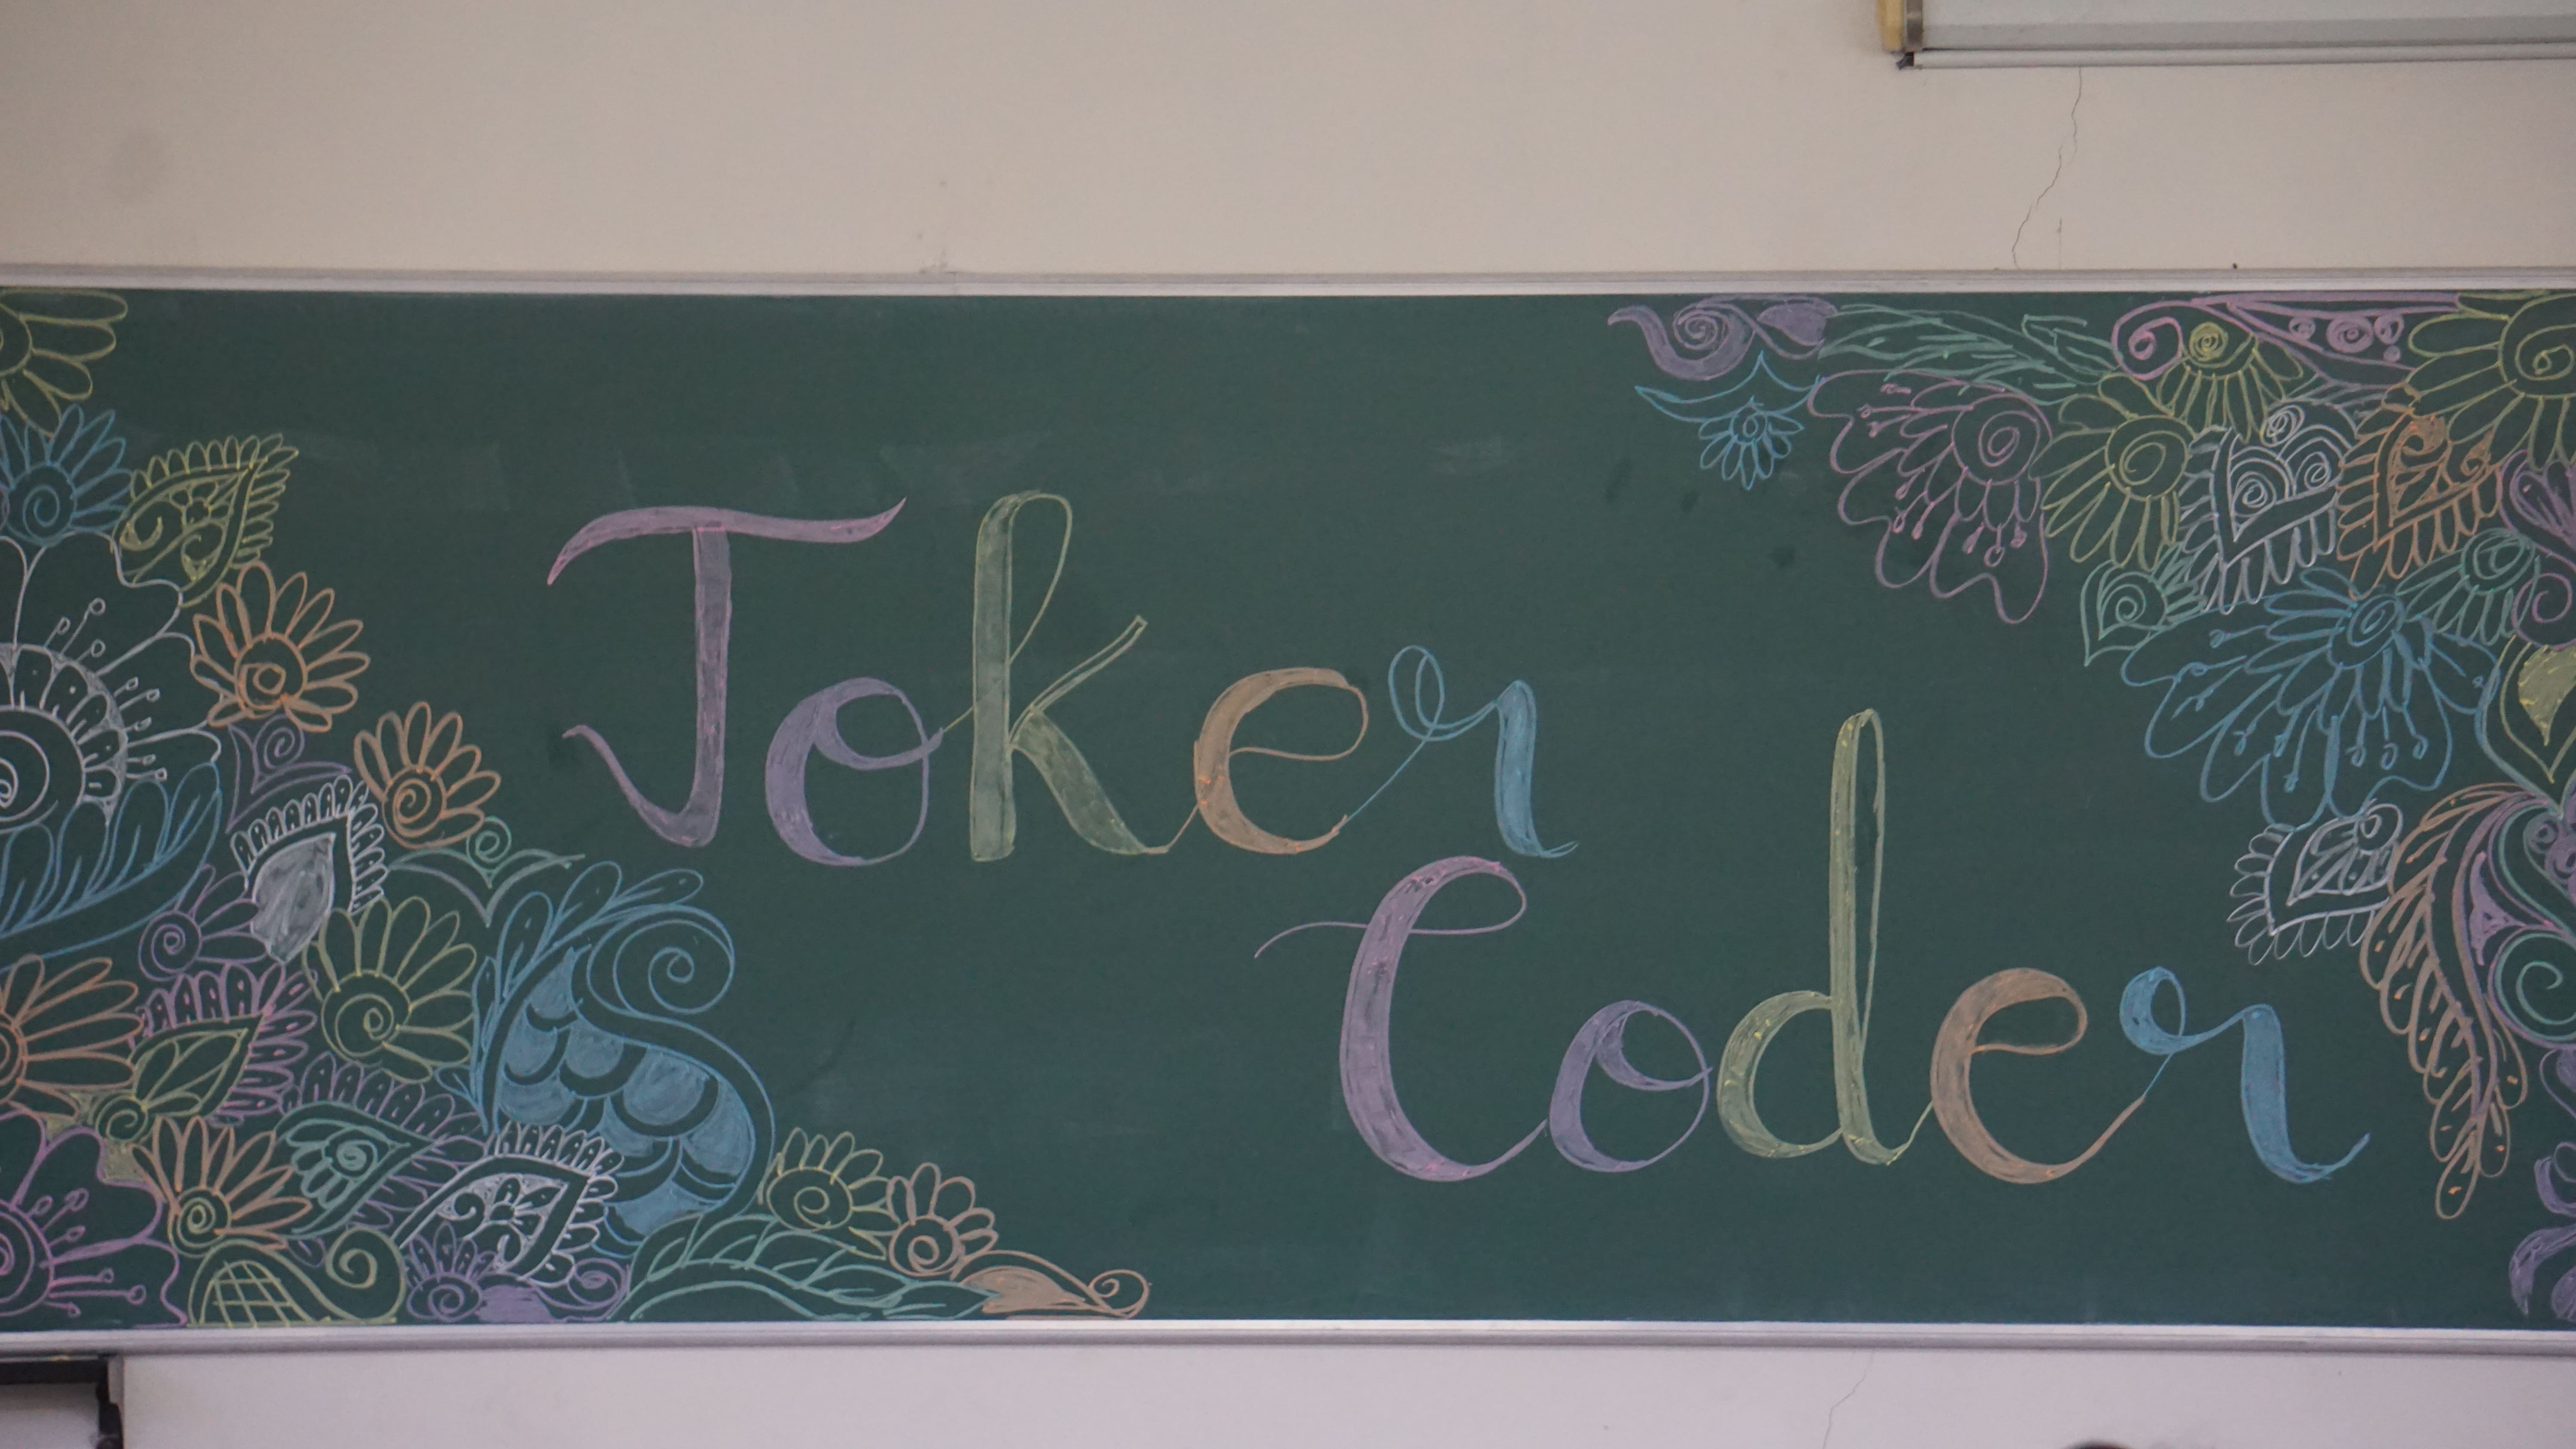 Joker
Coder